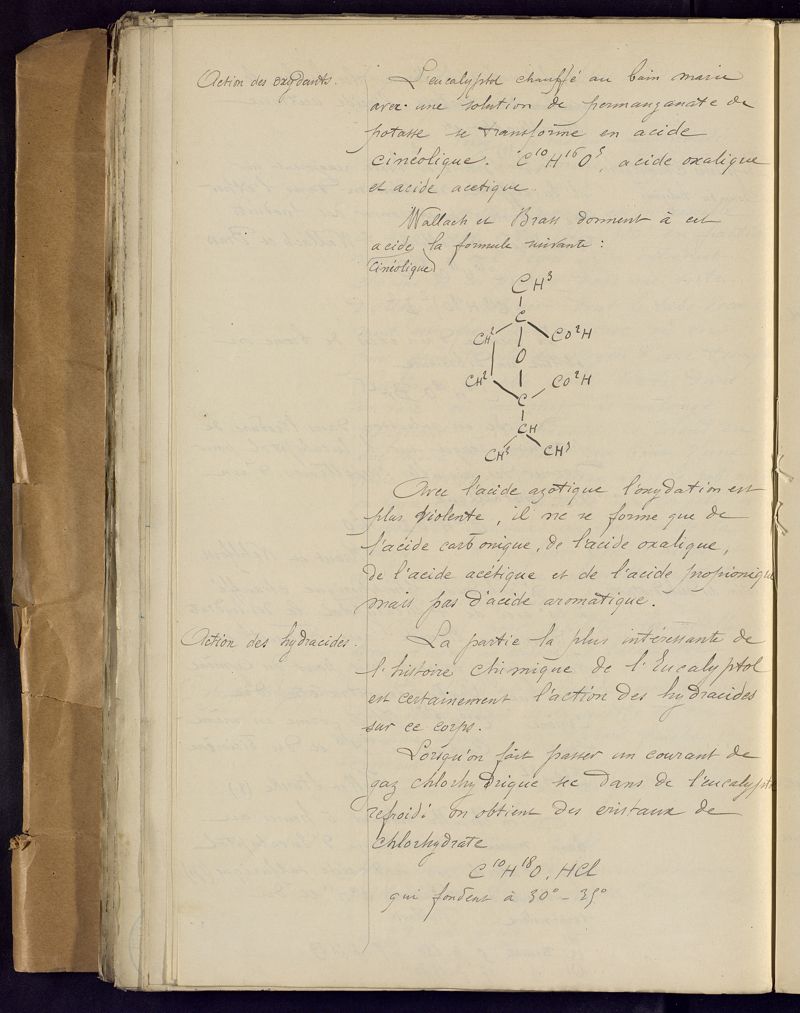 Action des oxydants.
L'eucalyptol chauffé au bain marie
avec une solution de permanganate de
potasse se transforme en acide
cinéolique. C¹⁰H¹⁶O⁵, acide oxalique
et acide acétique.
Wallach et Brass donnent à cet
acide la formule suivante :
(cinéolique)
CH³
C
CH² CO²H
O
CH² CO²H
C
CH
CH³ CH³
Avec l'acide azotique l'oxydation est
plus violente, il ne se forme que de
l'acide carbonique, de l'acide oxalique,
de l'acide acétique et de l'acide propionique
mais pas d'acide aromatique.
Action des hydracides.
La partie la plus intéressante de
l'histoire chimique de l'Eucalyptol
est certainement l'action des hydracides
sur ce corps.
Lorsqu'on fait passer un courant de
gaz chlorhydrique sec dans de l'eucalypt
refroidi on obtient des cristaux de
chlorhydrate
C¹⁰H¹⁸O, HCl
qui fondent à 30° - 35°